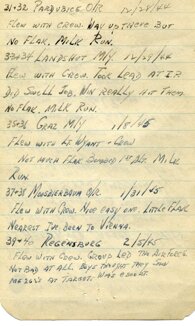 31+32 PARDUBICE O/R 12/28/44
FLEW WITH CREW. WAY UP THERE BUT
NO FLAK. MILK RUN.
33+34 LANDSHUT M/Y 12/29/44
FLEW WITH CREW. TOOK LEAD AT I.P.
DID SWELL JOB. WIN REALLY HIT THEM
NO FLAK. MILK RUN.
35+36 GRAZ M/Y 1/5/45
FLEW WITH LT WYANT + CREW
NOT MUCH FLAK. BOMBED 1ST. MILK
RUN.
37+38 MOOSBIERBAUM O/R. 1/31/45
FLEW WITH CREW. NICE EASY ONE. LITTLE FLAK
NEAREST I'VE BEEN TO VIENNA.
39+40 REGENSBURG 2/5/45
FLEW WITH CREW. GROUP LED THE AIR FORCE.
NOT BAD AT ALL. BOYS THOUGHT THEY SAW
ME 262'S AT TARGET. WAS